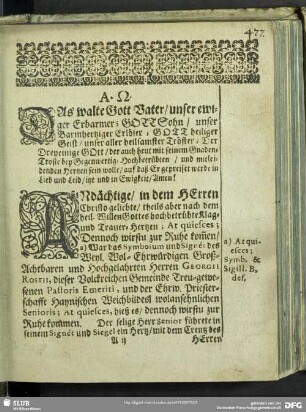 477
A. Ω.
DAs walte Gott Vater/unser ewi-
ger Erbarmer; GOTT Sohn / unser
Barmhertziger Erlöser; GOTT heiliger
Geist / unser aller heilsamster Tröster; Der
Dreyeinige GOtt / der auch heut mit seinem Gnaden
Troste bey Gegenwertig-Hochbetrübten / und mitlei-
denden Hertzen sein wolle / auf daß Er gepreiset werde in
Lieb und Leid / itzt und in Ewigkeit / Amen!
ANdächtige / in dem HErren
Christo geliebte / theils aber nach dem
heil. Willen Gottes hochbetrübte Klag-
und Trauer-Hertzen; At quiesces;
Dennoch wirstu zur Ruhe kommen/
a) War das Symbolum und Signét des
Weyl. Wol-Ehrwürdigen Groß-
Achtbaren und Hochgelahrten Herren GEORGII
ROSTII, dieser Volckreichen Gemeinde Treu-gewe-
senen Pastoris Emeriti, und der Ehrw. Priester-
schafft Haynischen Weichbildes wolansehnlichen
Senioris; At quiesces, hieß es / dennoch wirstu zur
Ruhe kommen. Der selige Herr Senior führete in
seinem Signét und Siegel ein Hertz / mit dem Creutz des
HErren
a) At qui-
esces;
Symb. &
Sigill. B.
def.
SLUB
Wir führen Wissen.